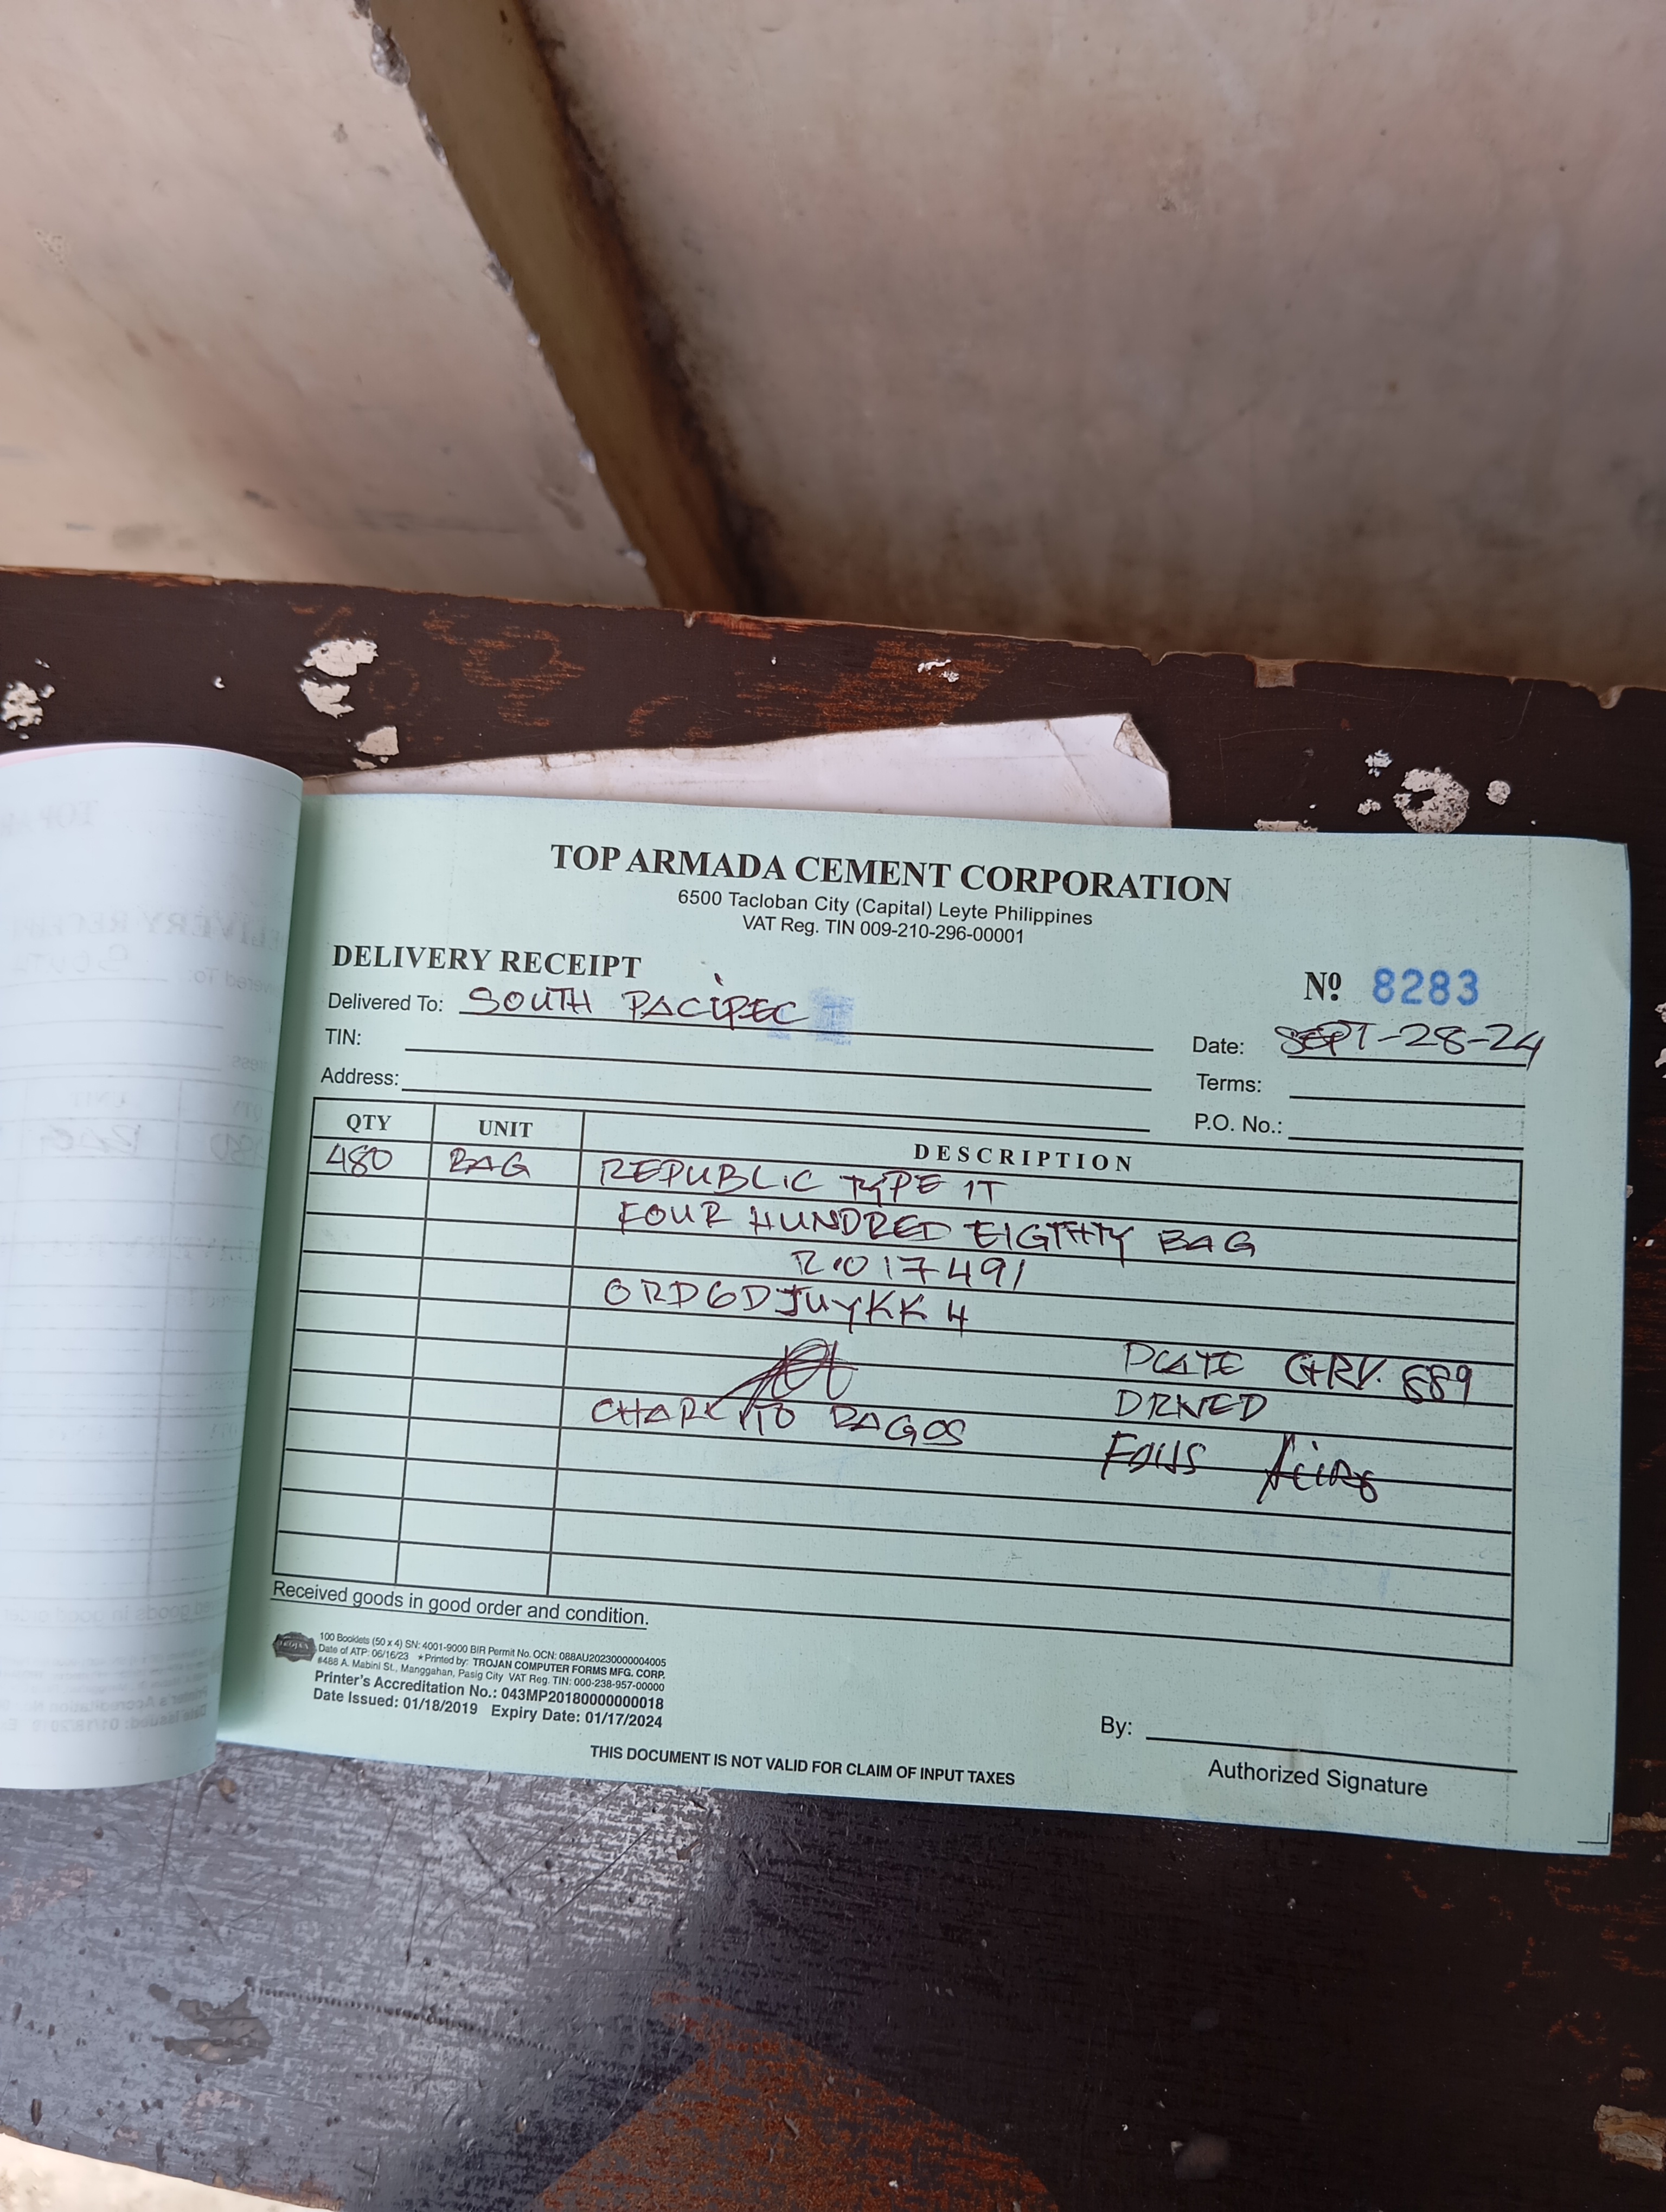 TOP ARMADA CEMENT CORPORATION
6500 Tacloban City (Capital) Leyte Philippines
VAT Reg. TIN 009-210-296-00001
DELIVERY RECEIPT
Nº 8283
Delivered To: SOUTH PACIPEC
Date: SEPT-28-24
TIN:
Terms:
Address:
P.O. No.:
QTY UNIT DESCRIPTION
480 BAG REPUBLIC TYPE 1T
FOUR HUNDRED EIGTHTY BAG
R1017491
ORD6DJUYKK4
PLATE GRV. 889
CHARITO BAGOS
Received goods in good order and condition.
TROJAN
100 Booklets (50 x 4) SN: 4001-9000 BIR Permit No. OCN: 088AU20230000004005
Date of ATP: 06/16/23 ★Printed by: TROJAN COMPUTER FORMS MFG. CORP.
#488 A. Mabini St., Manggahan, Pasig City VAT Reg. TIN: 000-238-957-00000
Printer's Accreditation No.: 043MP20180000000018
Date Issued: 01/18/2019 Expiry Date: 01/17/2024
By:
Authorized Signature
THIS DOCUMENT IS NOT VALID FOR CLAIM OF INPUT TAXES